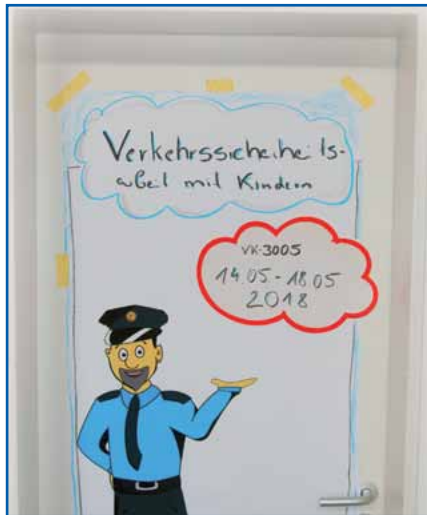 Verkehrssicherheits-
arbeit mit Kindern
VK-3005
14.05.-18.05
2018